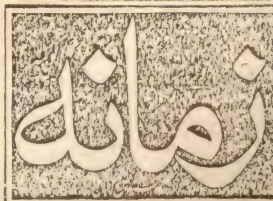 زمانہ